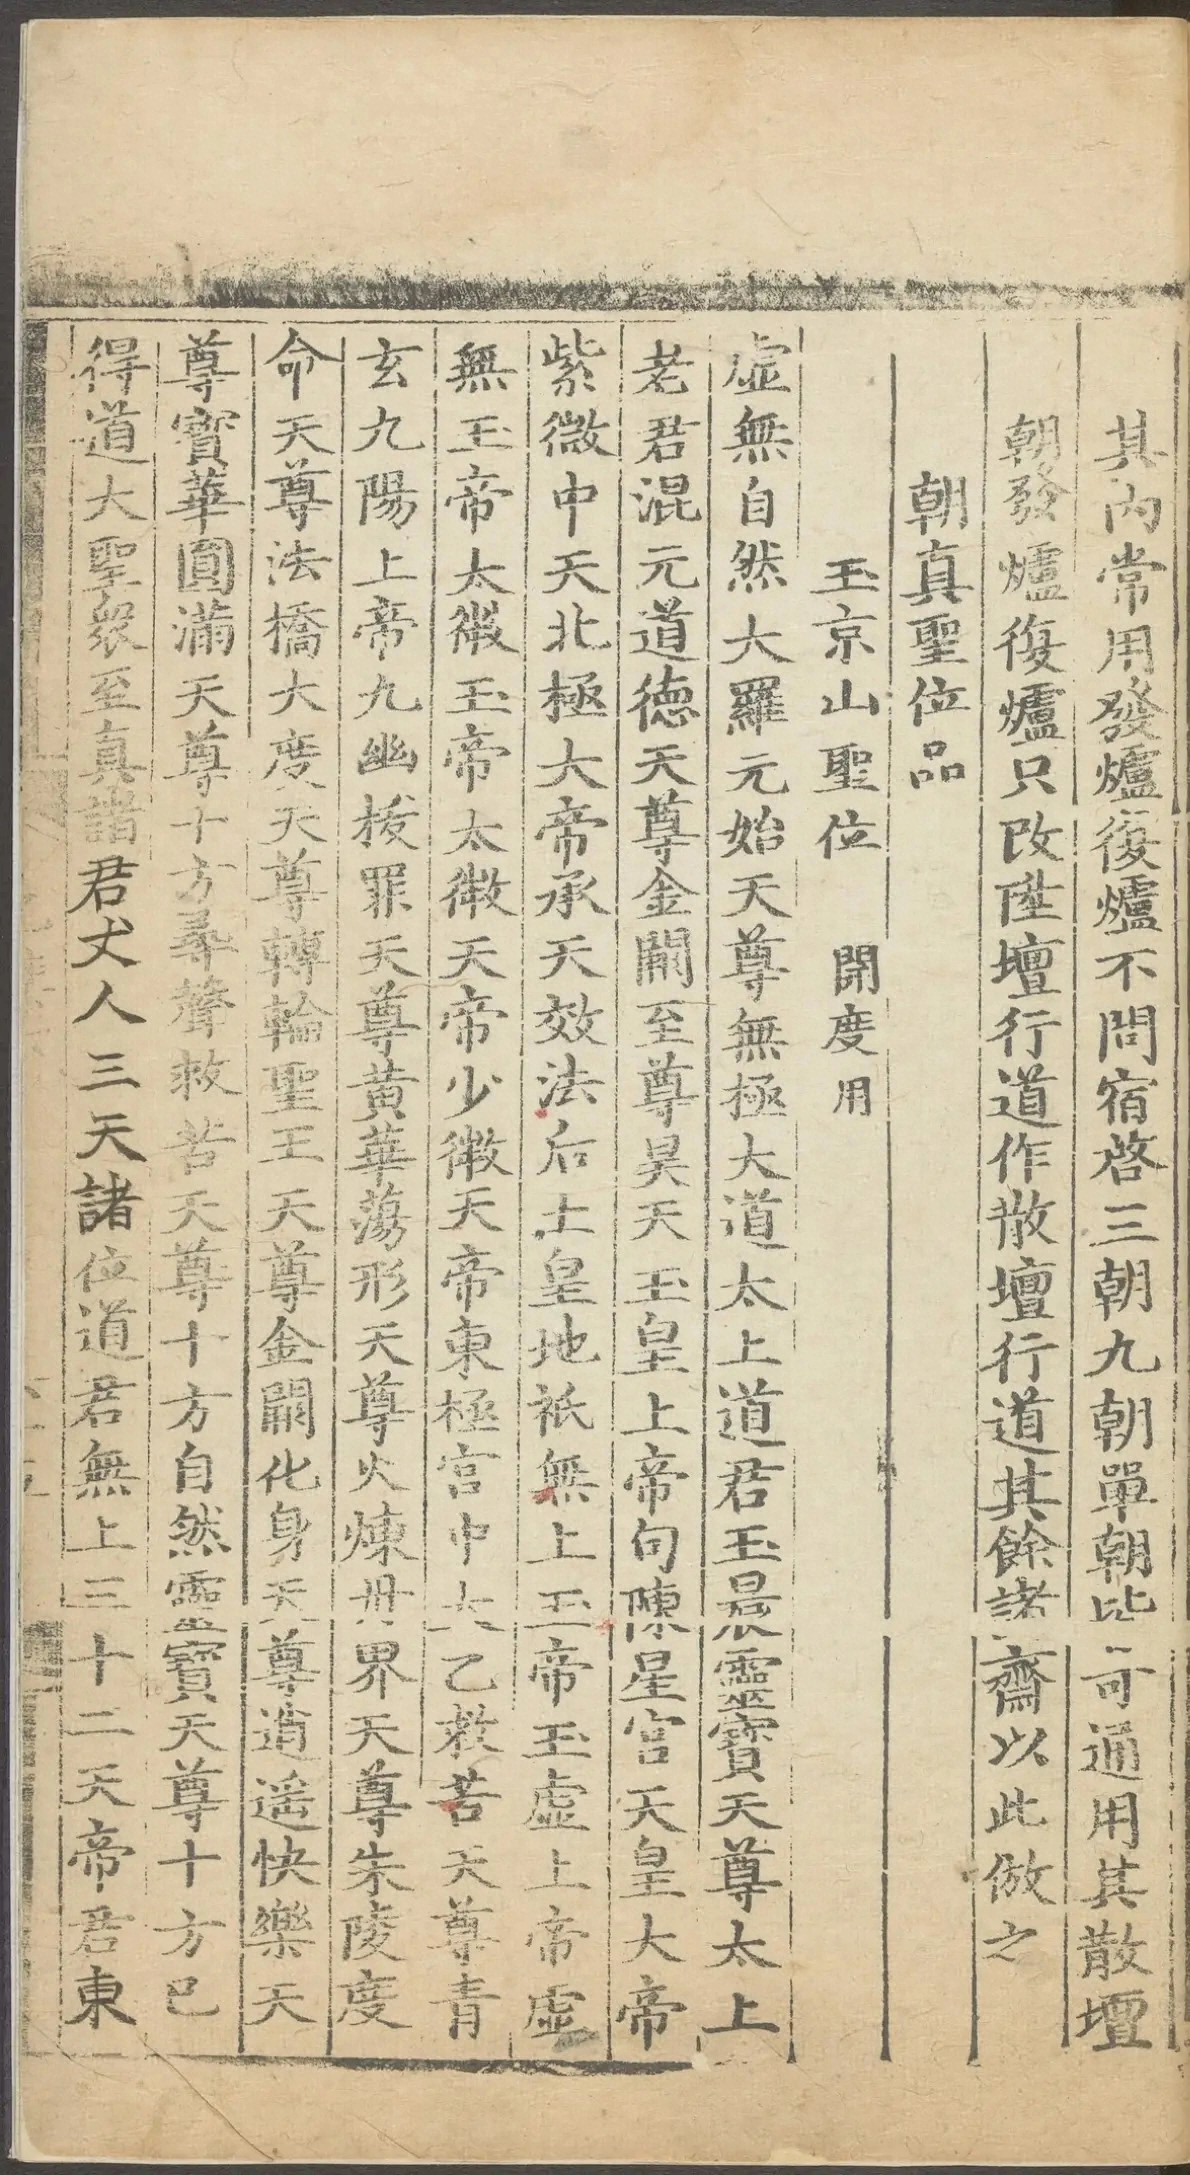 其內常用發爐復爐不問宿啓三朝九朝單朝皆可通用其散壇
朝發爐復爐只改陞壇行道作散壇行道其餘諸齋以此倣之
朝真聖位品
玉京山聖位 開度用
虛無自然大羅元始天尊無極大道太上道君玉晨靈寶天尊太上
老君混元道德天尊金闕至尊昊天玉皇上帝句陳星宮天皇大帝
紫微中天北極大帝承天效法后土皇地祇無上玉帝玉虛上帝虛
無玉帝太微玉帝太微天帝少微天帝東極宮中大乙救苦天尊青
玄九陽上帝九幽拔罪天尊黃華蕩形天尊火煉丹界天尊朱陵度
命天尊法橋大度天尊轉輪聖王天尊金闕化身天尊逍遥快樂天
尊寳華圓滿天尊十方尋聲救苦天尊十方自然靈寶天尊十方已
得道大聖眾至真諸君丈人三天諸位道君無上三十二天帝君東